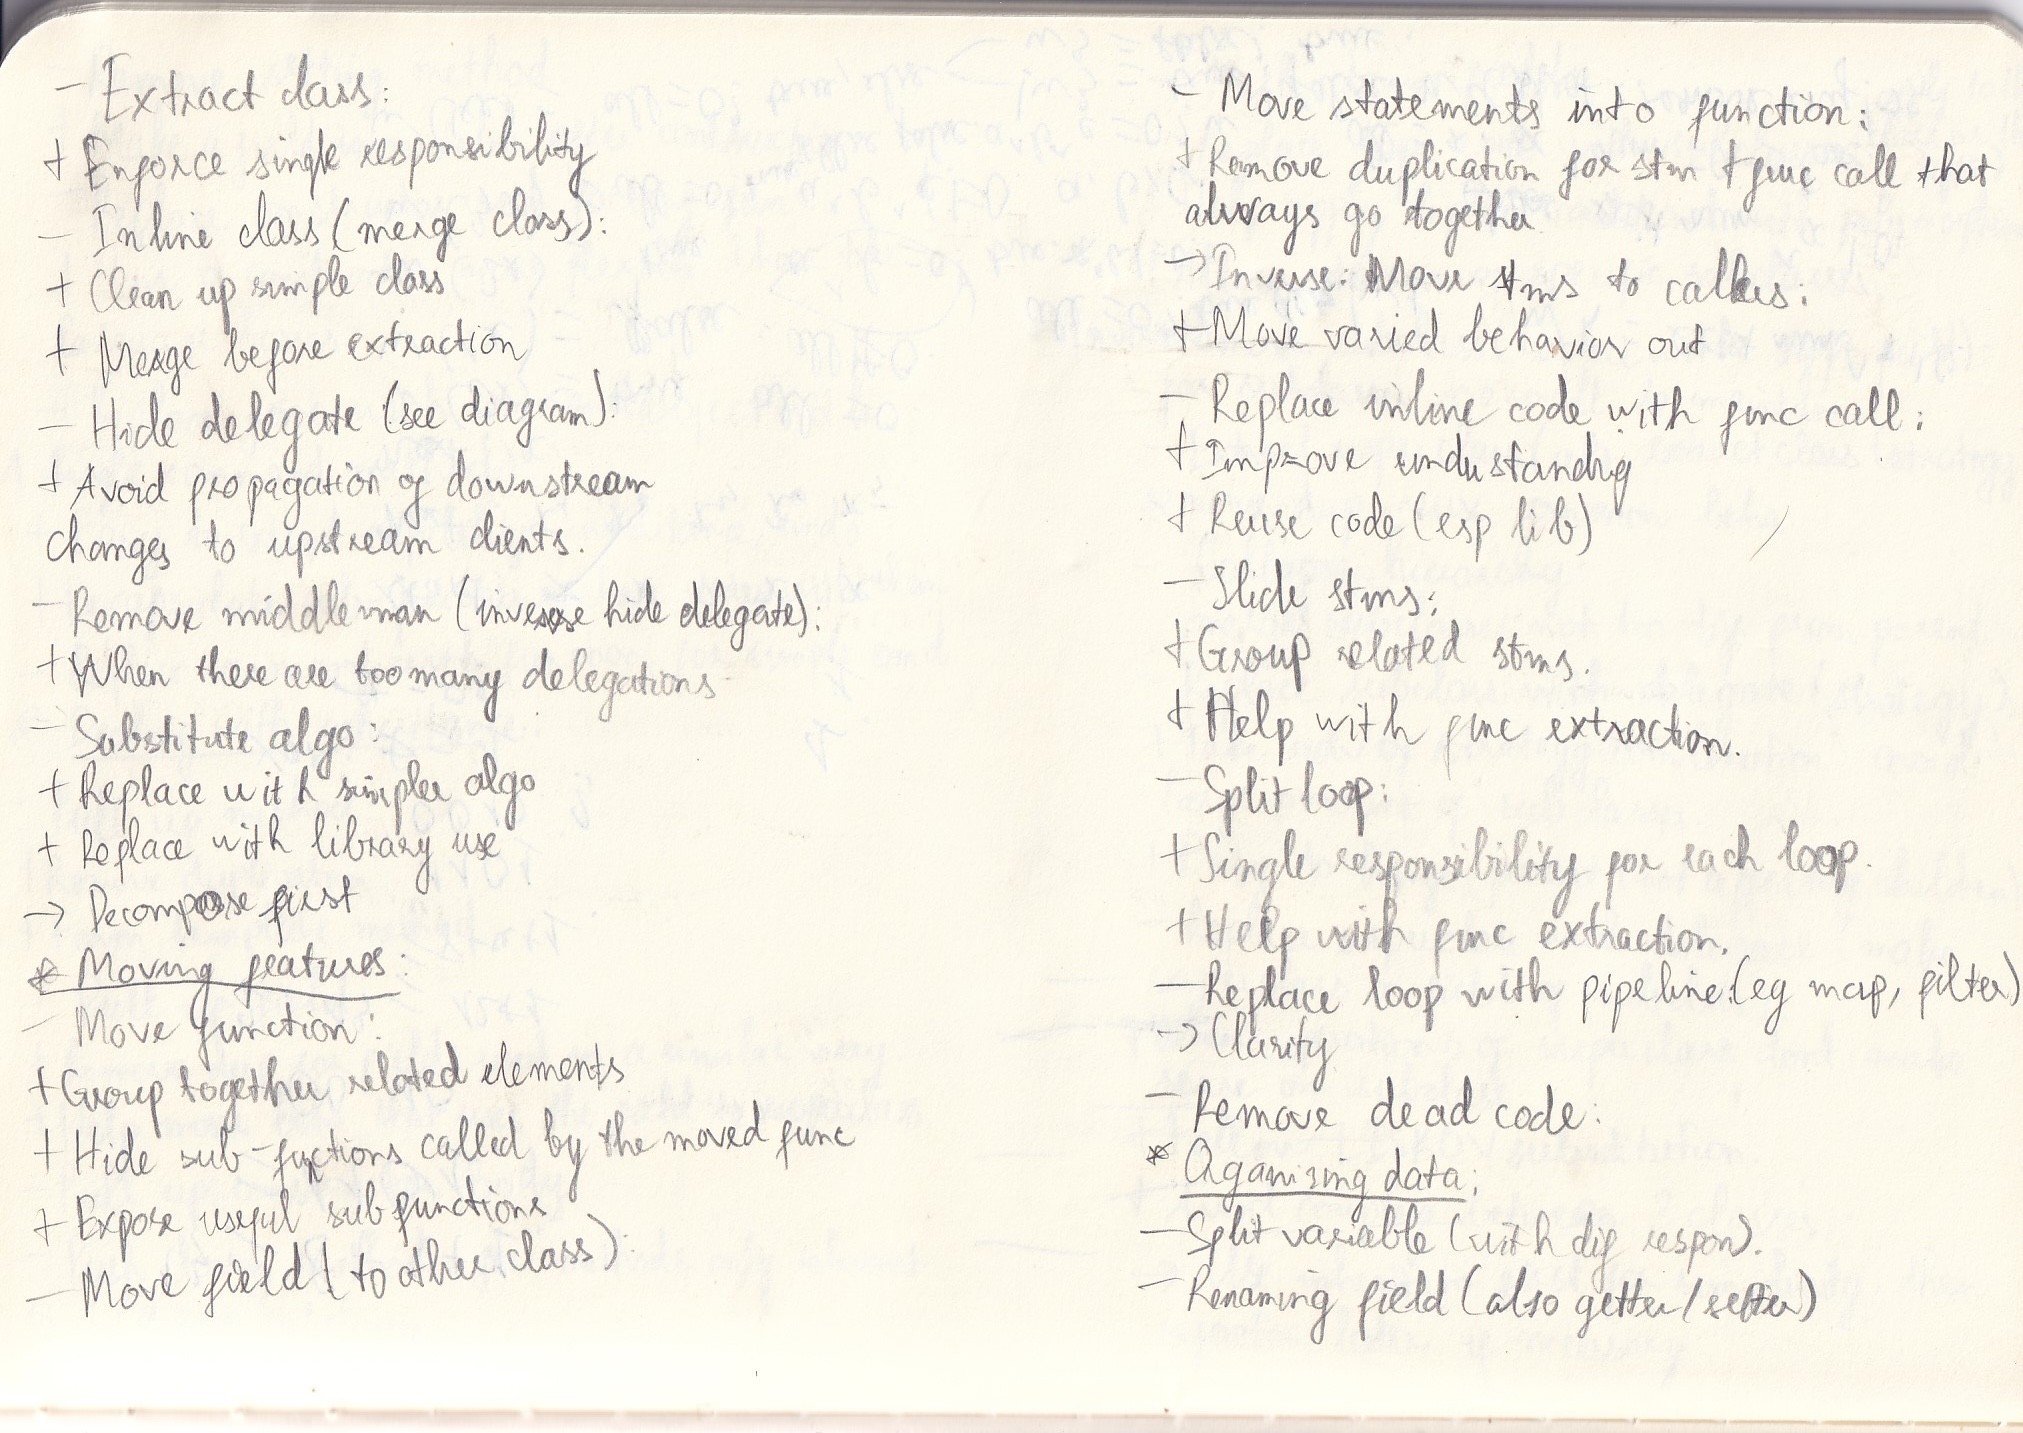 - Extract class:
+ Enforce single responsibility
- Inline class (merge class):
+ Clean up simple class
+ Merge before extraction
- Hide delegate (see diagram):
+ Avoid propagation of downstream
changes to upstream clients.
- Remove middle man (inverse hide delegate):
+ When there are too many delegations
- Substitute algo:
+ Replace with simpler algo
+ Replace with library use
-> Decompose first
* Moving features:
- Move function:
+ Group together related elements
+ Hide sub-functions called by the moved func
+ Expose useful subfunctions
- Move field (to other class):
- Move statements into function:
+ Remove duplication for stm + func call that
always go together
-> Inverse: Move stms to callers:
+ Move varied behavior out
- Replace inline code with func call:
+ Improve understandig
+ Reuse code (esp lib)
- Slide stms:
+ Group related stms.
+ Help with func extraction.
- Split loop:
+ Single responsibility for each loop.
+ Help with func extraction.
- Replace loop with pipeline (eg map, filter)
-> Clarity
- Remove dead code:
* Oganising data:
- Split variable (with dif respon).
- Renaming field (also getter/setter)